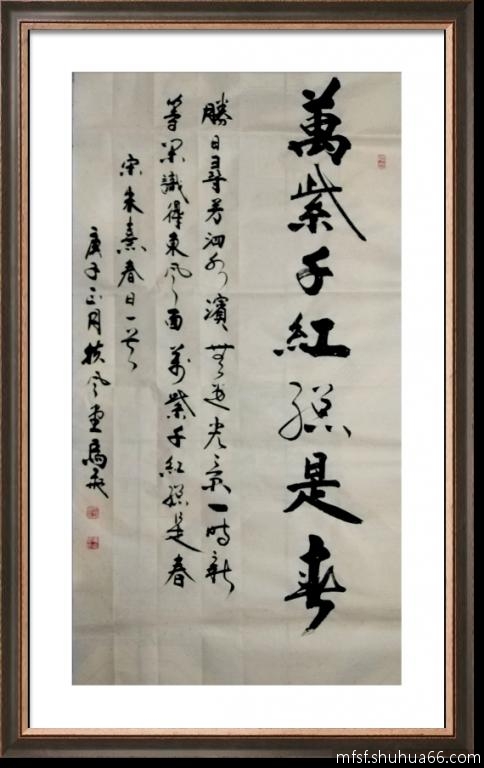 萬紫千紅總是春
勝日尋芳泗水濱無邊光景一時新
等閑識得東風面萬紫千紅總是春
宋朱熹春日一首
庚子正月扶风堂馬飛
mfsf.shuhua66.com